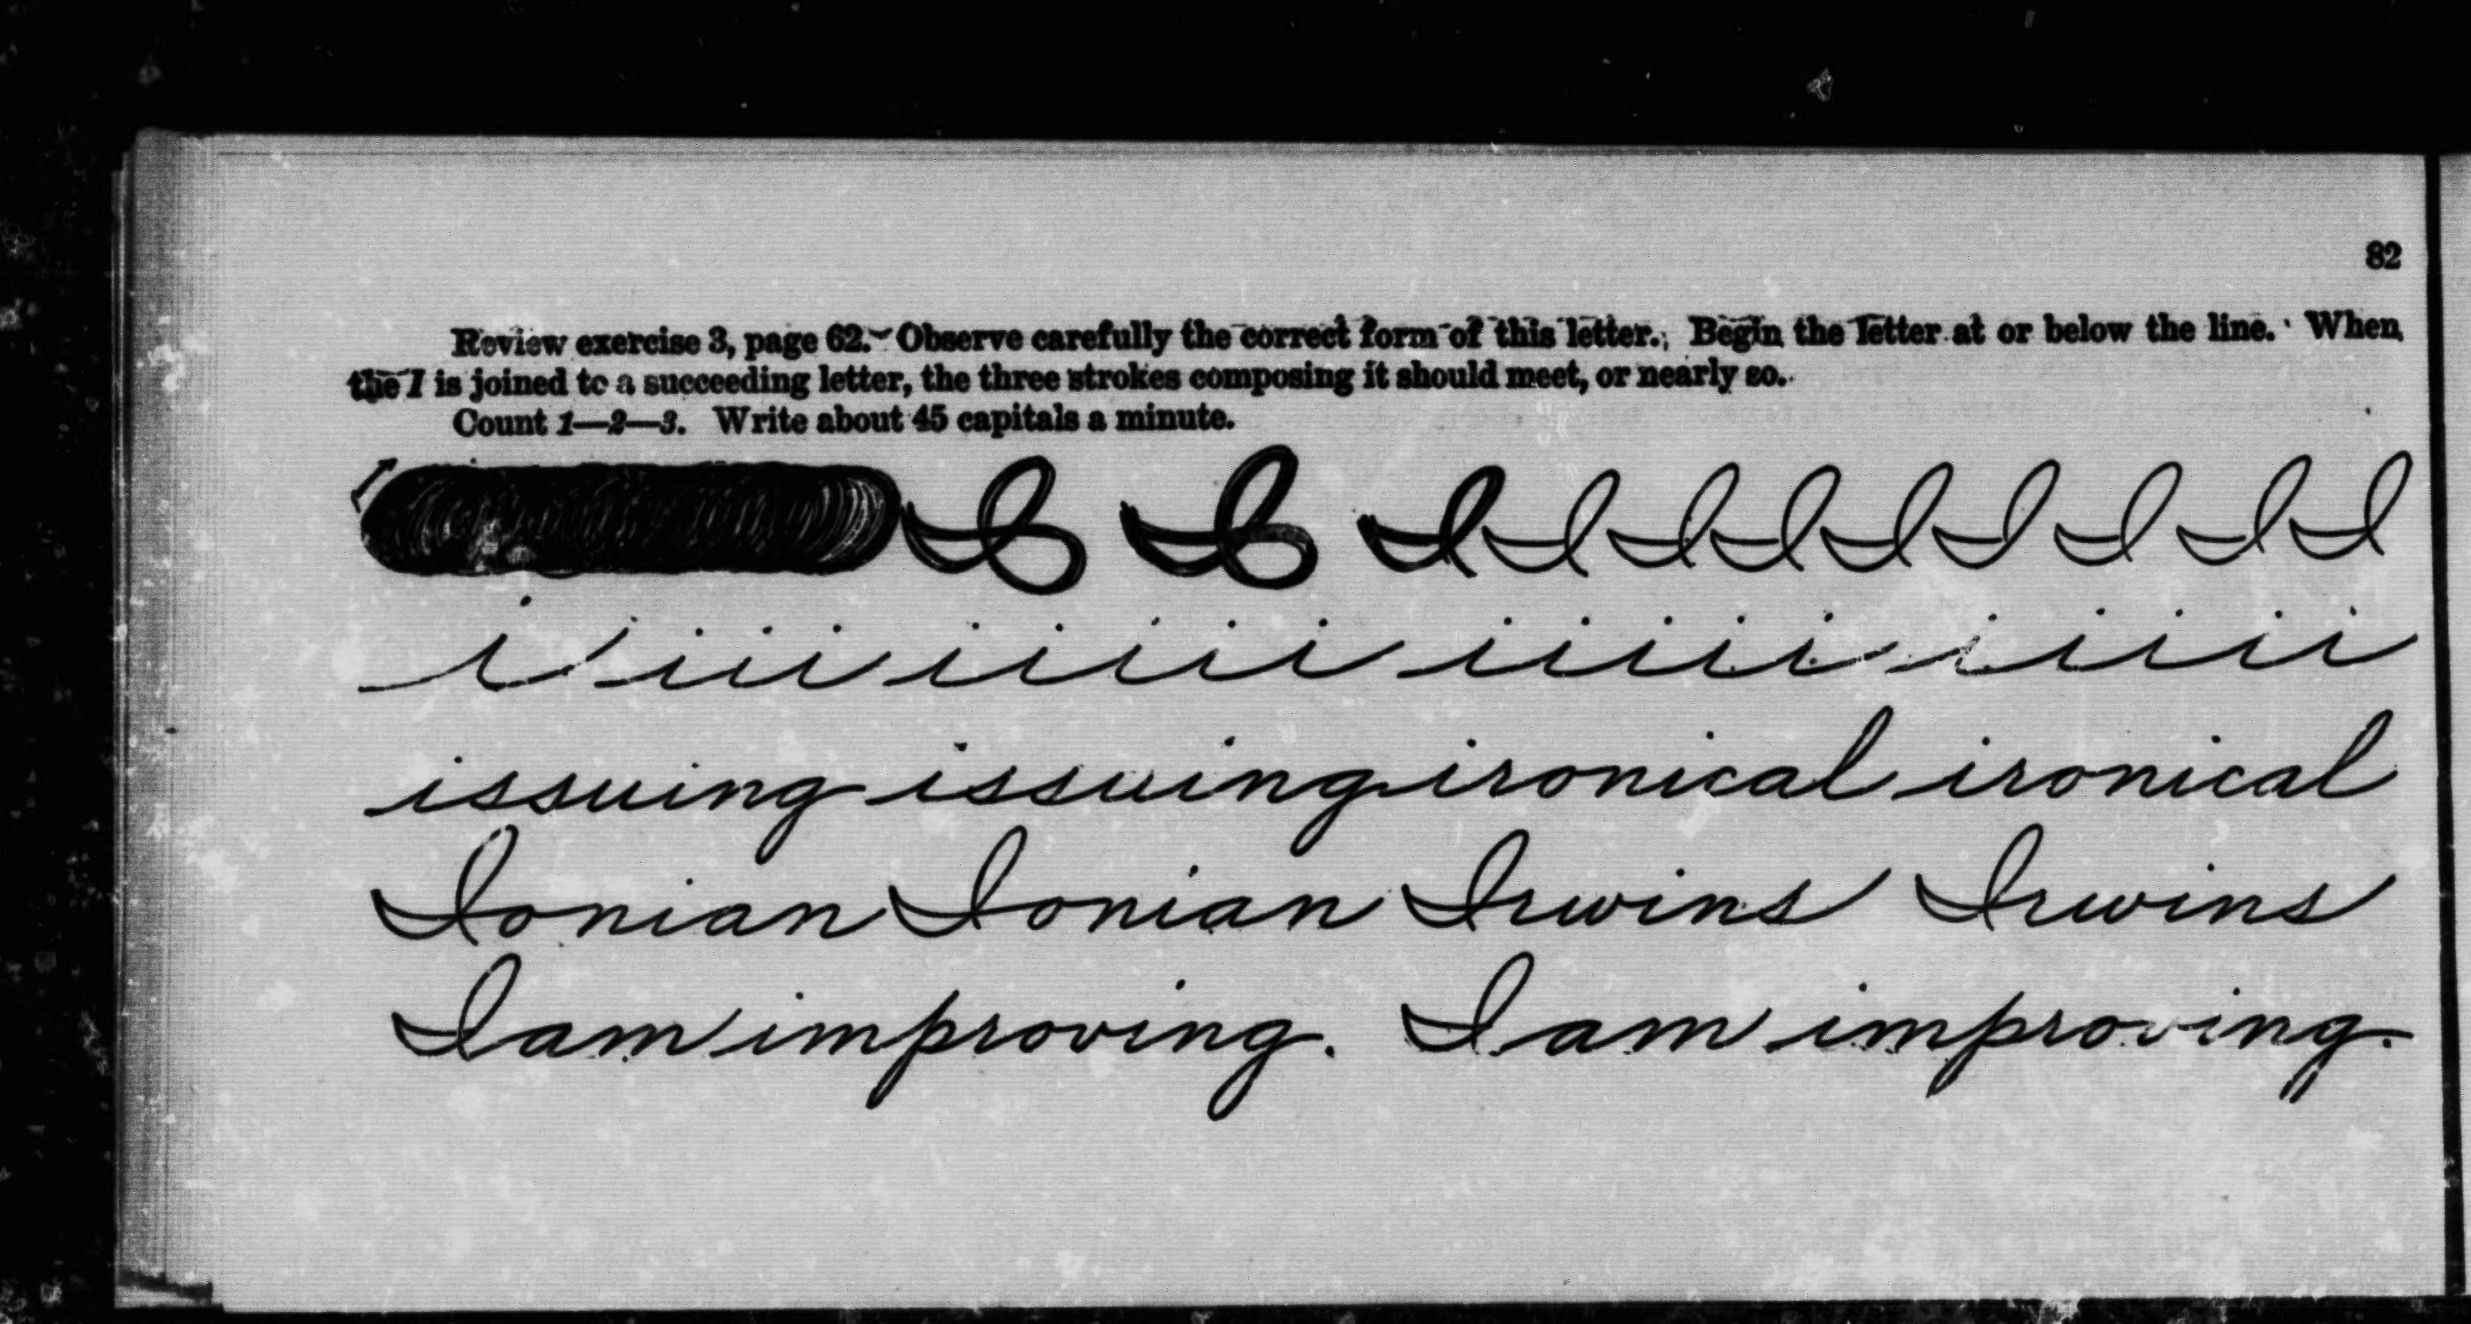 82
Review exercise 3, page 62. Observe carefully the correct form of this letter. Begin the letter at or below the line. When
the I is joined to a succeeding letter, the three strokes composing it should meet, or nearly so.
Count 1—2—3. Write about 45 capitals a minute.
I I I I I I I I I I I
i i i i i i i i i i i i i i i i i i
issuing issuing ironical ironical
Ionian Ionian Irwins Irwins
I am improving. I am improving.